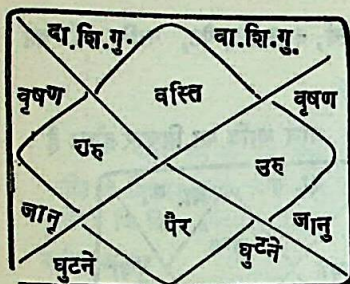 दा.शि.गु. वा.शि.गु.
वृषण वस्ति वृषण
उरु उरु
जानु पैर जानु
घुटने घुटने